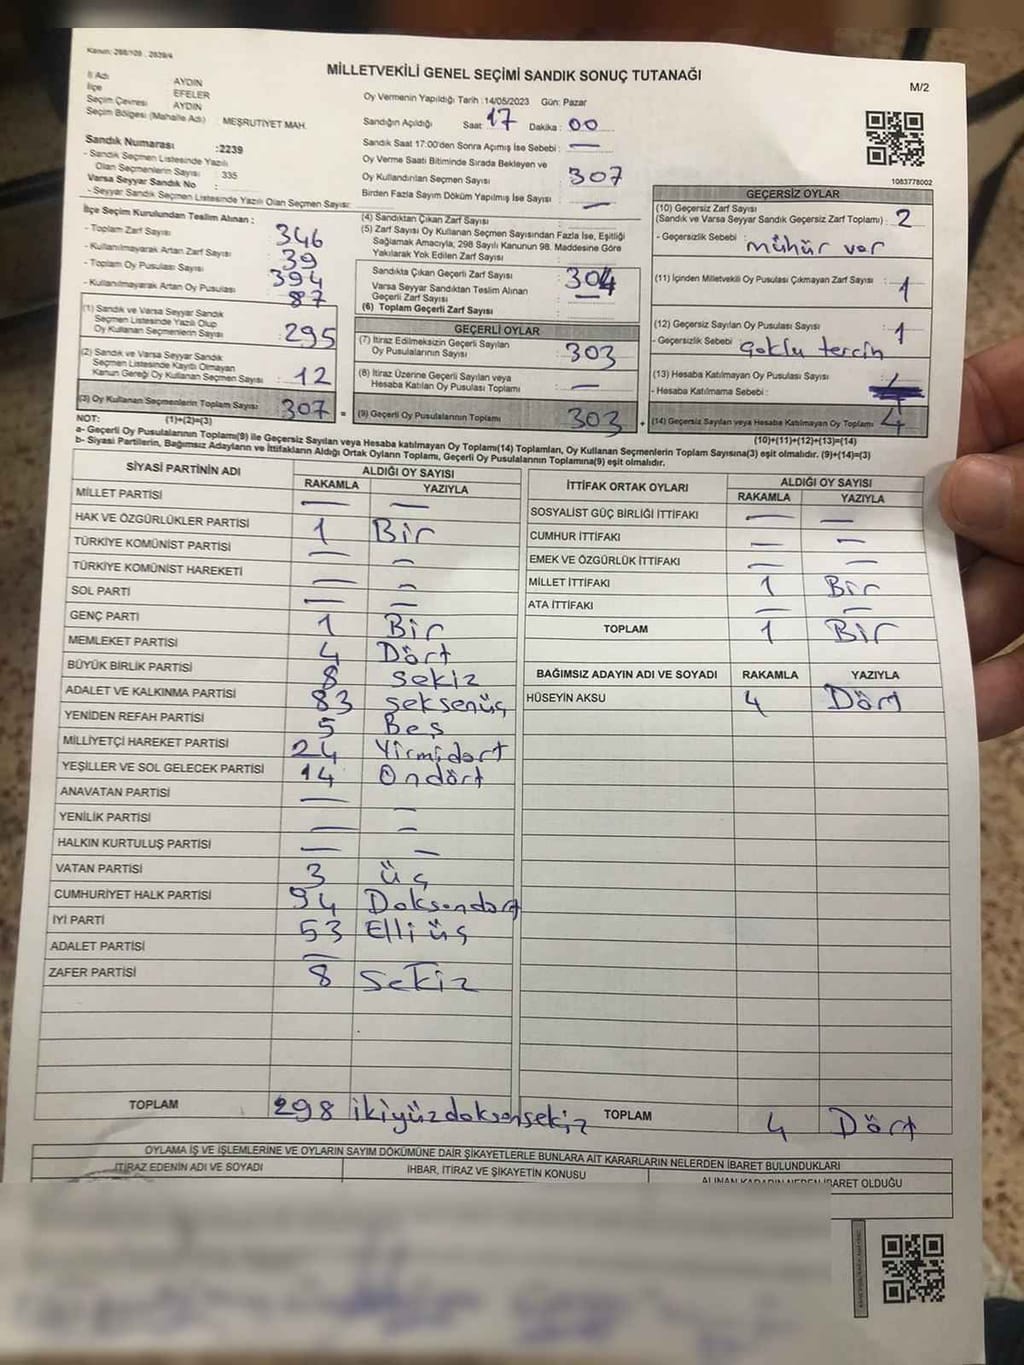 Kanun: 298/109 , 2839/4
MİLLETVEKİLİ GENEL SEÇİMİ SANDIK SONUÇ TUTANAĞI
M/2
İl Adı AYDIN
İlçe EFELER
Seçim Çevresi AYDIN
Seçim Bölgesi (Mahalle Adı) MEŞRUTİYET MAH.
Sandık Numarası :2239
- Sandık Seçmen Listesinde Yazılı
Olan Seçmenlerin Sayısı : 335
Varsa Seyyar Sandık No :
- Seyyar Sandık Seçmen Listesinde Yazılı Olan Seçmen Sayısı:
Oy Vermenin Yapıldığı Tarih :14/05/2023 Gün: Pazar
Sandığın Açıldığı Saat 17 Dakika : 00
Sandık Saat 17:00'den Sonra Açımış İse Sebebi : —
Oy Verme Saati Bitiminde Sırada Bekleyen ve
Oy Kullandırılan Seçmen Sayısı : 307
Birden Fazla Sayım Döküm Yapılmış İse Sayısı : —
1083778002
İlçe Seçim Kurulundan Teslim Alınan :
- Toplam Zarf Sayısı : 346
- Kullanılmayarak Artan Zarf Sayısı : 39
- Toplam Oy Pusulası Sayısı : 394
- Kullanılmayarak Artan Oy Pusulası : 87
(1) Sandık ve Varsa Seyyar Sandık
Seçmen Listesinde Yazılı Olup
Oy Kullanan Seçmenlerin Sayısı : 295
(2) Sandık ve Varsa Seyyar Sandık
Seçmen Listesinde Kayıtlı Olmayan
Kanun Gereği Oy Kullanan Seçmen Sayısı : 12
(3) Oy Kullanan Seçmenlerin Toplam Sayısı : 307 =
(1)+(2)=(3)
(4) Sandıktan Çıkan Zarf Sayısı :
(5) Zarf Sayısı Oy Kullanan Seçmen Sayısından Fazla İse, Eşitliği
Sağlamak Amacıyla; 298 Sayılı Kanunun 98. Maddesine Göre
Yakılarak Yok Edilen Zarf Sayısı :
Sandıkta Çıkan Geçerli Zarf Sayısı : 304
Varsa Seyyar Sandıktan Teslim Alınan
Geçerli Zarf Sayısı : —
(6) Toplam Geçerli Zarf Sayısı :
GEÇERLİ OYLAR
(7) İtiraz Edilmeksizin Geçerli Sayılan
Oy Pusulalarının Sayısı : 303
(8) İtiraz Üzerine Geçerli Sayılan veya
Hesaba Katılan Oy Pusulası Toplamı : —
(9) Geçerli Oy Pusulalarının Toplamı 303 +
GEÇERSİZ OYLAR
(10) Geçersiz Zarf Sayısı
(Sandık ve Varsa Seyyar Sandık Geçersiz Zarf Toplamı) : 2
- Geçersizlik Sebebi : mühür var
(11) İçinden Milletvekili Oy Pusulası Çıkmayan Zarf Sayısı : 1
(12) Geçersiz Sayılan Oy Pusulası Sayısı : 1
- Geçersizlik Sebebi çoklu tercih
(13) Hesaba Katılmayan Oy Pusulası Sayısı :
- Hesaba Katılmama Sebebi :
(14) Geçersiz Sayılan veya Hesaba Katılmayan Oy Toplamı : 4
(10)+(11)+(12)+(13)=(14)
NOT:
a- Geçerli Oy Pusulalarının Toplamı(9) ile Geçersiz Sayılan veya Hesaba katılmayan Oy Toplamı(14) Toplamları, Oy Kullanan Seçmenlerin Toplam Sayısına(3) eşit olmalıdır. (9)+(14)=(3)
b- Siyasi Partilerin, Bağımsız Adayların ve İttifakların Aldığı Ortak Oyların Toplamı, Geçerli Oy Pusulalarının Toplamına(9) eşit olmalıdır.
SİYASİ PARTİNİN ADI ALDIĞI OY SAYISI
RAKAMLA YAZIYLA
MİLLET PARTİSİ — —
HAK VE ÖZGÜRLÜKLER PARTİSİ 1 Bir
TÜRKİYE KOMÜNİST PARTİSİ — —
TÜRKİYE KOMÜNİST HAREKETİ — —
SOL PARTİ — —
GENÇ PARTİ 1 Bir
MEMLEKET PARTİSİ 4 Dört
BÜYÜK BİRLİK PARTİSİ 8 sekiz
ADALET VE KALKINMA PARTİSİ 83 seksenüç
YENİDEN REFAH PARTİSİ 5 Beş
MİLLİYETÇİ HAREKET PARTİSİ 24 Yirmidört
YEŞİLLER VE SOL GELECEK PARTİSİ 14 Ondört
ANAVATAN PARTİSİ — —
YENİLİK PARTİSİ — —
HALKIN KURTULUŞ PARTİSİ — —
VATAN PARTİSİ 3 üç
CUMHURİYET HALK PARTİSİ 94 Doksandört
İYİ PARTİ 53 Elli üç
ADALET PARTİSİ —
ZAFER PARTİSİ 8 Sekiz
TOPLAM 298 ikiyüzdoksansekiz
İTTİFAK ORTAK OYLARI ALDIĞI OY SAYISI
RAKAMLA YAZIYLA
SOSYALİST GÜÇ BİRLİĞİ İTTİFAKI — —
CUMHUR İTTİFAKI — —
EMEK VE ÖZGÜRLÜK İTTİFAKI — —
MİLLET İTTİFAKI 1 Bir
ATA İTTİFAKI — —
TOPLAM 1 Bir
BAĞIMSIZ ADAYIN ADI VE SOYADI RAKAMLA YAZIYLA
HÜSEYİN AKSU 4 Dört
TOPLAM 4 Dört
OYLAMA İŞ VE İŞLEMLERİNE VE OYLARIN SAYIM DÖKÜMÜNE DAİR ŞİKAYETLERLE BUNLARA AİT KARARLARIN NELERDEN İBARET BULUNDUKLARI
İTİRAZ EDENİN ADI VE SOYADI İHBAR, İTİRAZ VE ŞİKAYETİN KONUSU ALINAN KARARIN NEDEN İBARET OLDUĞU